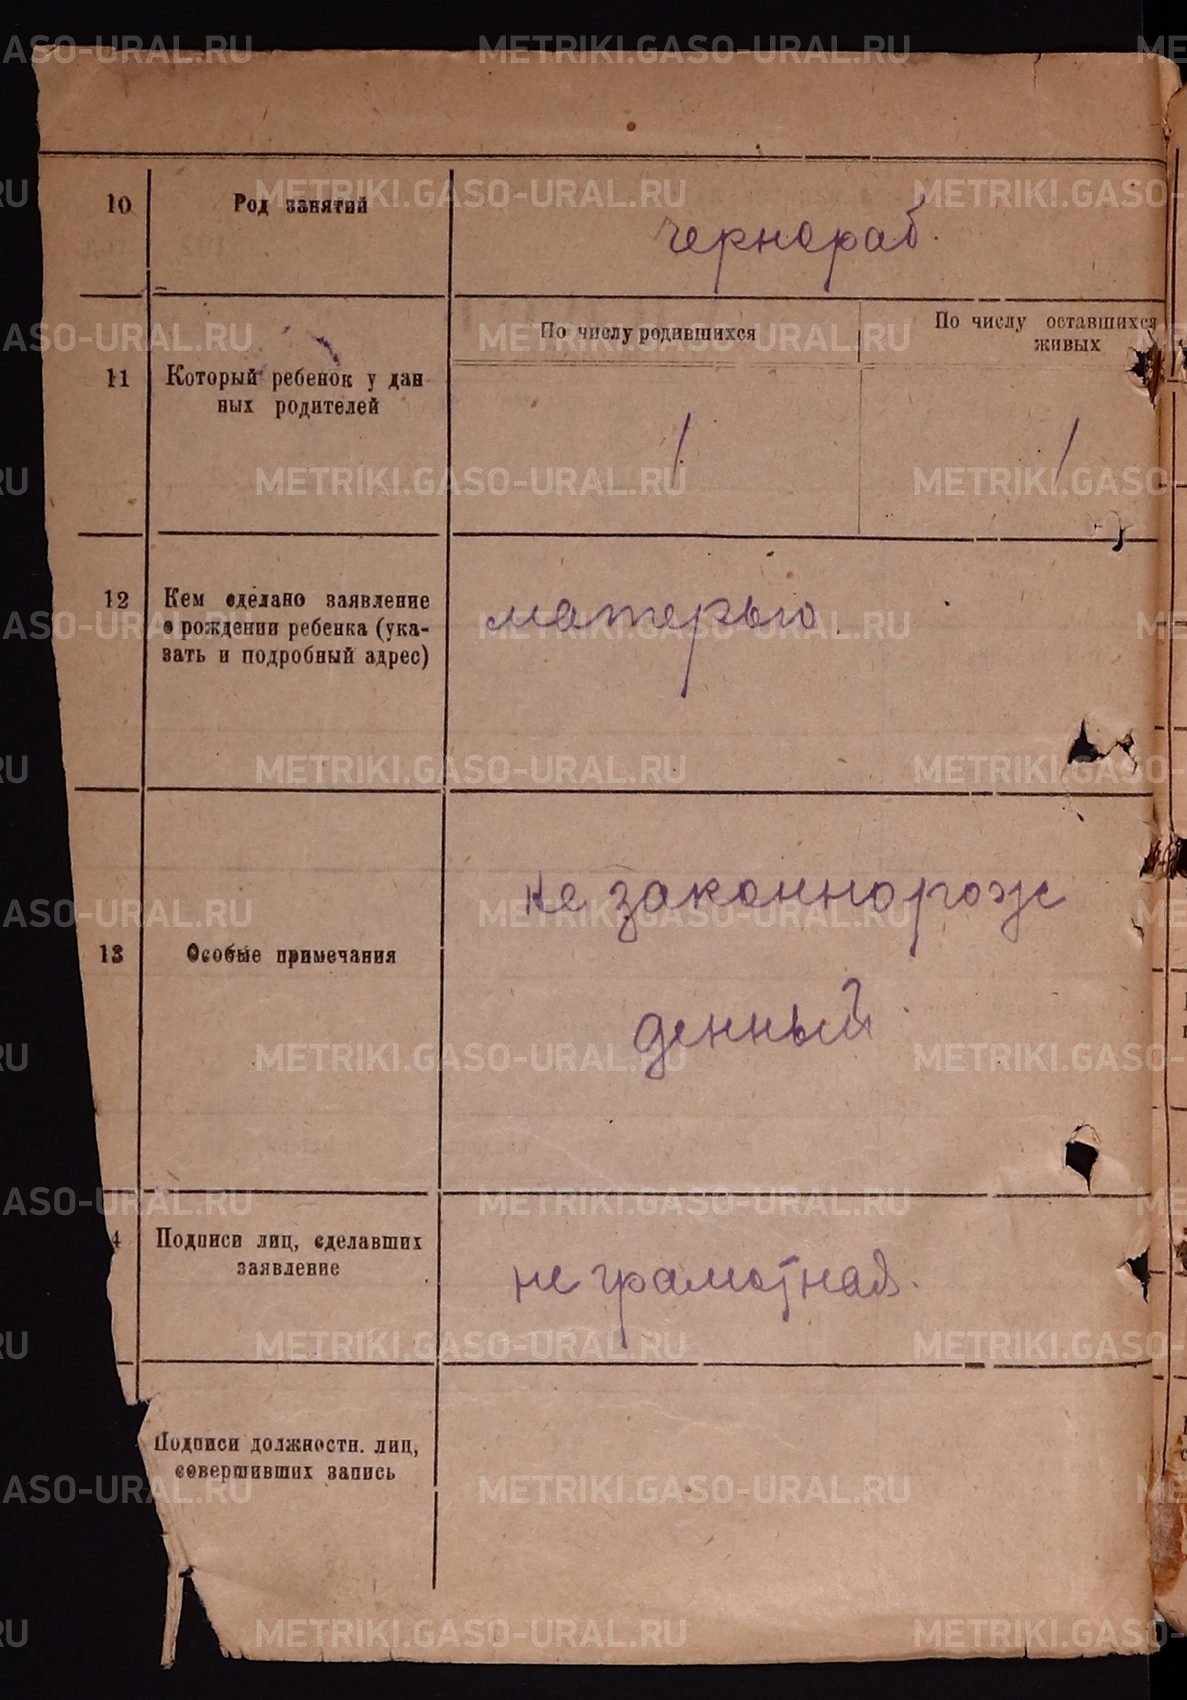 10
Род занятий
чернораб.
11
Который ребенок у дан
ных родителей
По числу родившихся
По числу оставшихся
живых
1
1
12
Кем сделано заявление
о рождении ребенка (ука-
зать и подробный адрес)
матерью.
13
Особые примечания
не законнорож
денный
4
Подписи лиц, сделавших
заявление
не грамотная.
Подписи должностн. лиц,
совершивших запись
METRIKI.GASO-URAL.RU